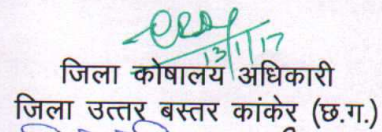 13/1/17
जिला कोषालय अधिकारी
जिला उत्तर बस्तर कांकेर (छ.ग.)